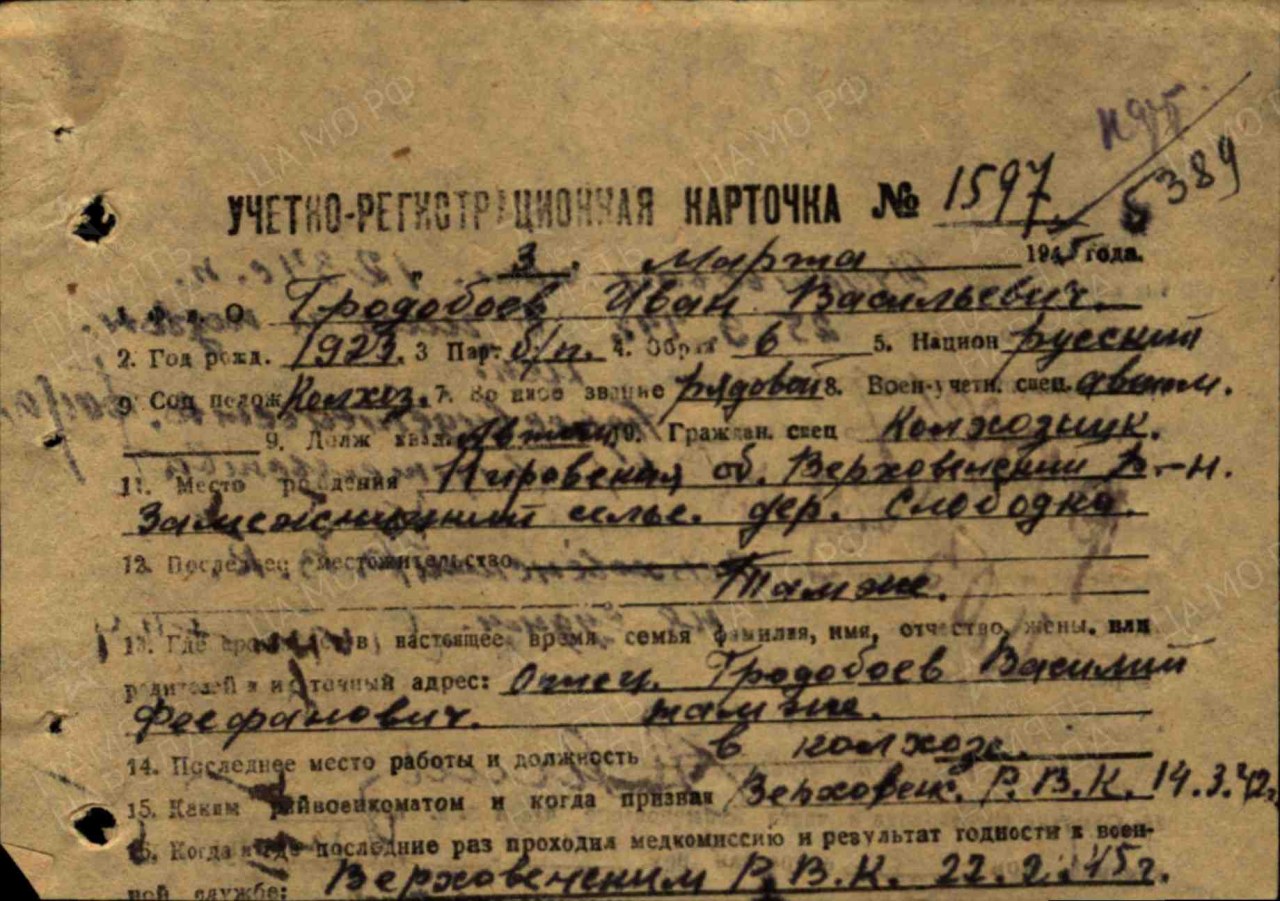 УЧЕТНО-РЕГИСТРАЦИОННАЯ КАРТОЧКА № 1597
5389
„ 3 „ Марта 1945 года.
1. Ф. И. О. Гродобоев Иван Васильевич.
2. Год рожд. 1923. 3 Парт. б/п. 4. Образ 6 5. Национ русский
Соц полож Колхоз. 7. Военное звание рядовой 8. Воен-учетн. спец. автом.
9. Долж квал. 9. Граждан. спец Колхозник.
11. Место рождения Кировская об. Верховенский р-н.
сельс. дер. Слободка.
12. Последнее местожительство
Тамже.
13. Где в настоящее время семья фамилия, имя, отчество, жены. или
родителей и их точный адрес: Отец. Гродобоев Василий
Феофанович. тамже.
14. Последнее место работы и должность в колхозе.
15. Каким райвоенкоматом и когда призван Верховен. Р.В.К. 14.3.42.
16. Когда и где последние раз проходил медкомиссию и результат годности к воен-
ной службе: Верховенским Р.В.К. 22.2.45г.
ЦА МО РФ
ПАМЯТЬ